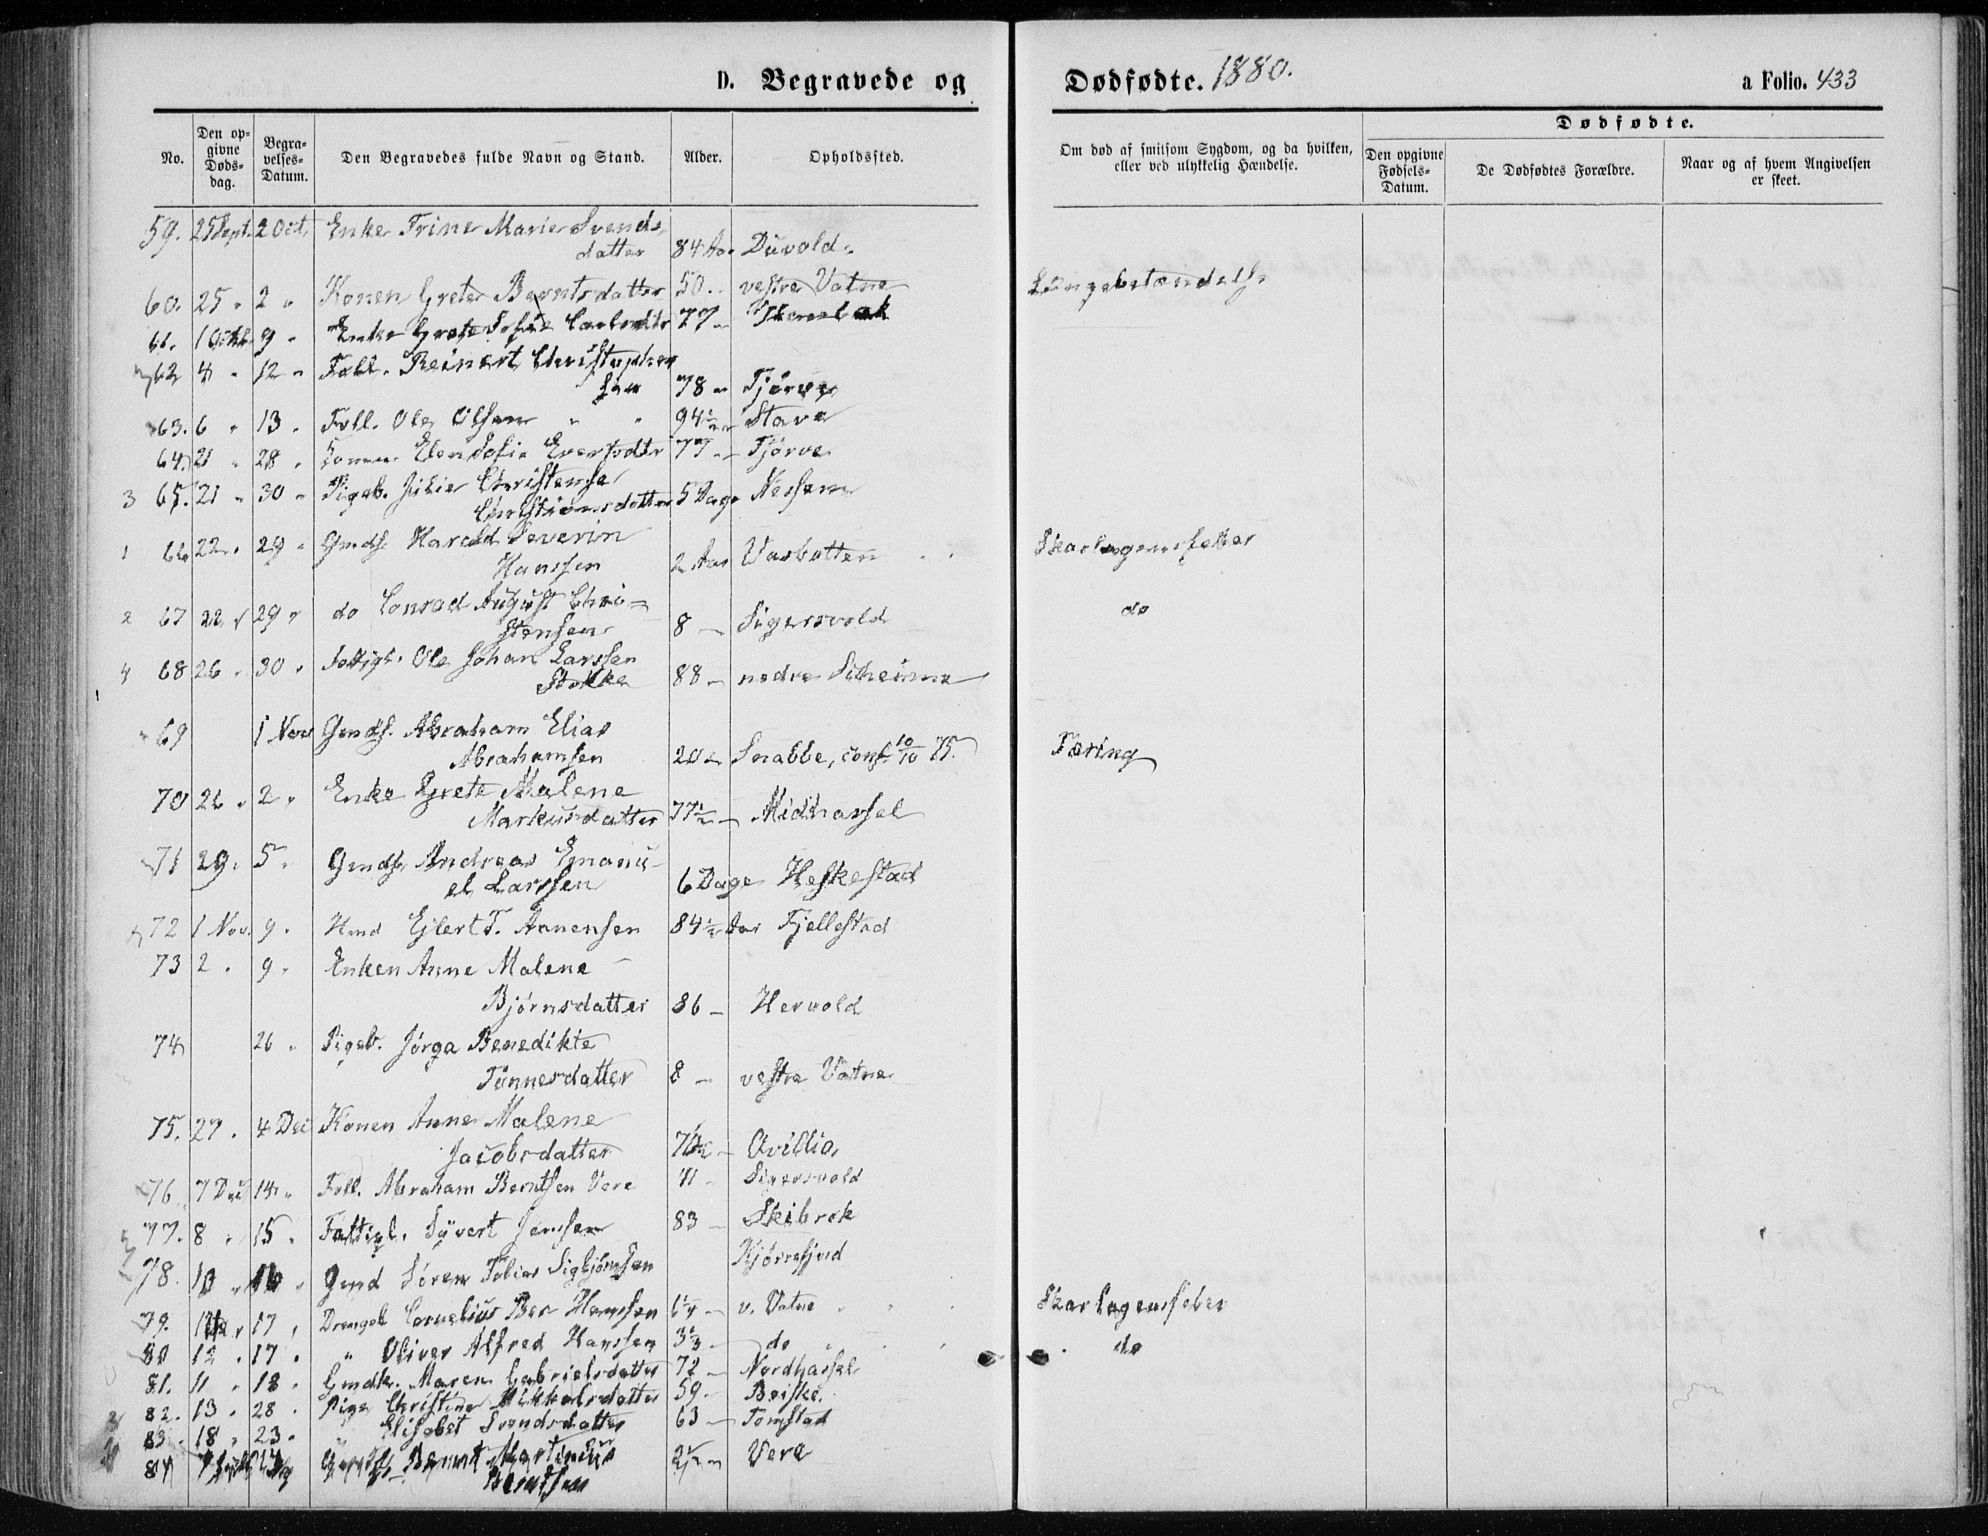 D. Begravede og Dødfødte. 1880. a Folio. 433
No. Den opgivne Dødsdag. Begravelses-Datum. Den Begravedes fulde Navn og Stand. Alder. Opholdssted. Om død af smitsom Sygdom, og da hvilken, eller ved ulykkelig Hændelse. Dødfødte.
Den opgivne Fødsels-Datum. De Dødfødtes Forældre. Naar og af hvem Angivelsen er skeet.
59. 25 Sept. 2 Oct. Enke Trine Marie Svends-
datter 84 Aar Duvold.
60. 25 " 2 " Konen Grete Berntsdatter 50 " vestre Vatne Lungebetændelse
61. 1 Octb. 9 " Enke Grete Sofie 77 "
62 4 " 12 " Foll. Reinert Christopher
sen 78 " Tjørve
63. 6 " 13 " Foll. Ole Olsen 94½ " Stave
64. 21 " 28 " Konen Elen Sofie 77 " Tjørve
3 65. 21 " 30 " Pigeb. Julie Christense
Christiansdatter 5 Dage Nesseim
1 66 22 " 29 " Gmds. Harald Severin
Hanssen 2 Aar Vasbotten Skarlagensfeber
2 67 22 " 29 " do Conrad August Chri-
stensen 8 — Sigersvold do
4 68 26 " 30 " Fattigl. Ole Johan Larssen
Stokke 88 — nedre Skeime
69 1 Nov Gmds. Abraham Elias
Abrahamsen 20 " Snabbe, conf. 10/10 75. Tæring
70 26 " 2 " Enke Grete Malene
Markusdatter 77½ — Midthassel
71 29 " 5 " Gmds. Andreas Emanu-
el Larssen 6 Dage Heskestad
72 1 Nov. 9 " Hmd Eilert T. Aanensen 84½ Aar Fjellestad
73 2 " 9 " Enken Anne Malene
Bjørnsdatter 86 — Hervold
74 26 " Pigeb. Jørga Benedikte
Tønnesdatter 8 — vestre Vatne
75. 27 " 4 Dec Konen Anne Malene
Jacobsdatter
76 7 Dec 14 " Foll. Abraham Berntsen Vere Sigersvold
77. 8 " 15 " Fattigl. Syvert Jensen 83 — Skibrok
78. 10 " Gmd Søren Tobias Sigbjørnsen Kjørrefjord
79. 17 " Drengeb. Cornelius Ber Hanssen — v. Vatne Skarlagensfeber
80 12 " 17 " " Oliver Alfred Hanssen — do do
81. 11 " 18 " Gmdk. Maren Gabrielsdatter 72 — Nordhassel
82. 13 " 28 " Pige Christine Mikkelsdatter 59 — Briske.
83. 18 " 23 " " Elisabet Svendsdatter 63 — Tomstad
84 Bernt Martinius
Berntsen 2½ " Vere